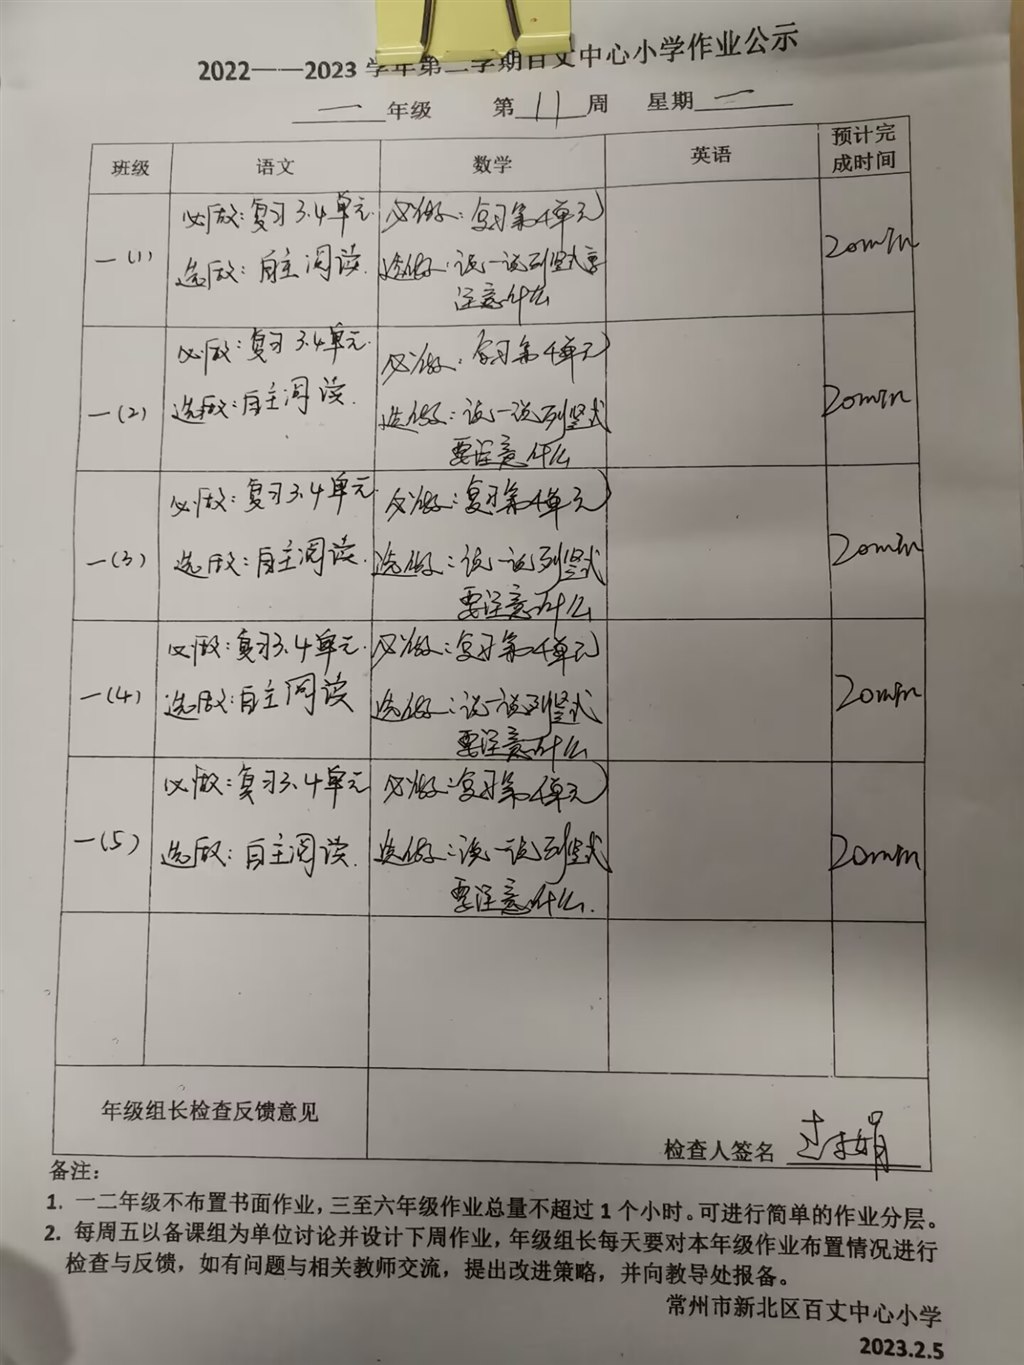 2022——2023 学年第二学期百丈中心小学作业公示
一 年级 第 11 周 星期 一
班级 语文 数学 英语 预计完成时间
一(1)
必做：复习3.4单元.
选做：自主阅读.
必做：复习第4单元
选做：说一说列竖式要
注意什么
20min
一(2)
必做：复习3.4单元.
选做：自主阅读.
必做：复习第4单元
选做：说一说列竖式
要注意什么
20min
一(3)
必做：复习3.4单元.
选做：自主阅读.
必做：复习第4单元
选做：说一说列竖式
要注意什么
20min
一(4)
必做：复习3.4单元.
选做：自主阅读
必做：复习第4单元
选做：说一说列竖式
要注意什么
20min
一(5)
必做：复习3.4单元
选做：自主阅读.
必做：复习第4单元
选做：说一说列竖式
要注意什么.
20min
年级组长检查反馈意见
检查人签名
备注：
1. 一二年级不布置书面作业，三至六年级作业总量不超过 1 个小时。可进行简单的作业分层。
2. 每周五以备课组为单位讨论并设计下周作业，年级组长每天要对本年级作业布置情况进行
检查与反馈，如有问题与相关教师交流，提出改进策略，并向教导处报备。
常州市新北区百丈中心小学
2023.2.5